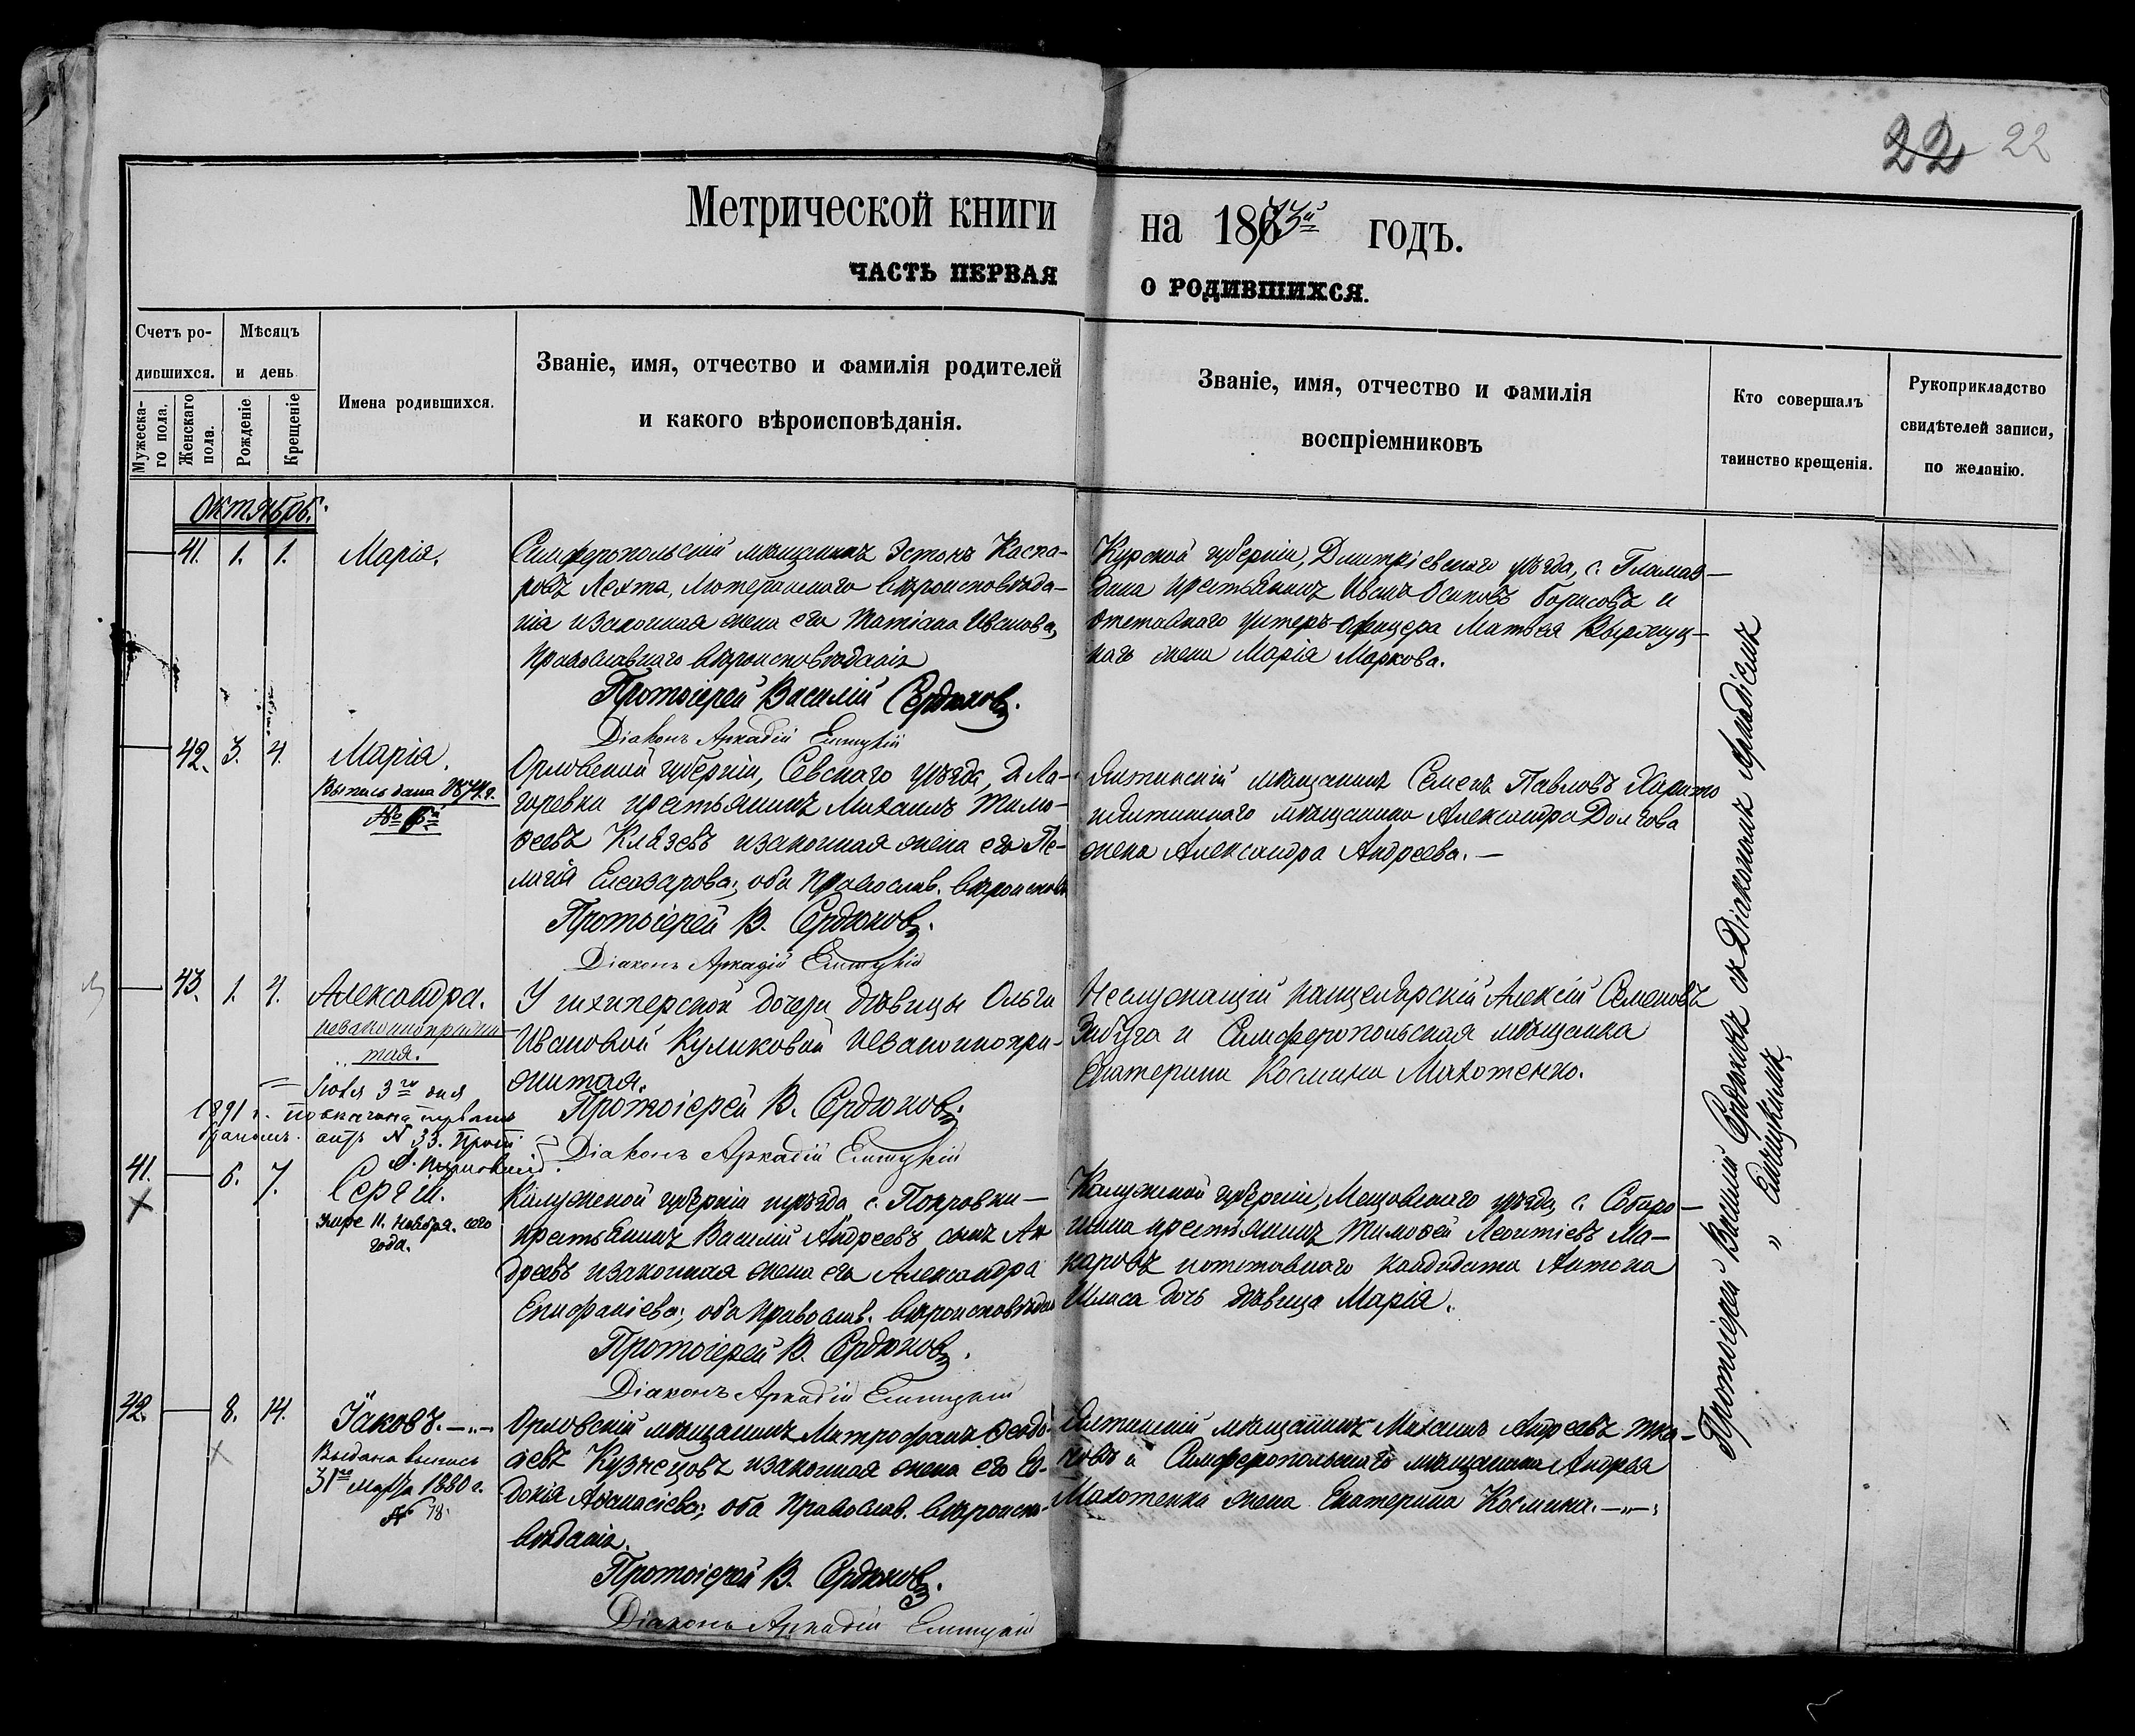 22 22
Метрической книги на 1873й годъ.
ЧАСТЬ ПЕРВАЯ О РОДИВШИХСЯ.
Счетъ ро-
дившихся.
Мѣсяцъ
и день
Мужеска-
го пола.
Женскаго
пола.
Рожденіе
Крещеніе
Имена родившихся.
Званіе, имя, отчество и фамилія родителей
и какого вѣроисповѣданія.
Званіе, имя, отчество и фамилія
воспріемниковъ
Кто совершалъ
таинство крещенія.
Рукоприкладство
свидѣтелей записи,
по желанію.
Октябрь.
41. 1. 1.
Марія.
Симферопольскій мѣщанинъ Эстонъ Каспа-
ровъ Лехта, Лютеранского вѣроисповѣда-
нія и законная жена его Татіана Иванова,
Православнаго вѣроисповѣданія
Протоіерей Василій Сердюковъ.
Діаконъ Аркадій
Курской губерніи, Дмитріевскаго уѣзда, с.
крестьянинъ Иванъ Осиповъ Борисовъ и
отставнаго унтеръ-офицера Матвея
жена Марія Маркова.
42. 3. 4.
Марія.
Выпись дана 1874 г.
№
Орловской губерніи, Севскаго уѣзда, д. Ла-
горевки крестьянинъ Михаилъ Тимо-
ѳеевъ Князевъ и законная жена его Пе-
лагія Елеазарова; оба православ. вѣроиспов.
Протоіерей В. Сердюковъ.
Діаконъ Аркадій
Ялтинскій мѣщанинъ Семенъ Павловъ
и Ялтинскаго мѣщанина Александра Долгова
жена Александра Андреева.—
43. 1. 4.
Александра.
незаконнорожден-
ная.
У шхиперской дочери дѣвицы Ольги
Ивановой Куликовой незаконнопри-
житая.
Протоіерей В. Сердюковъ.
Діаконъ Аркадій
Неслужащій канцелярскій Алексій Семеновъ
и Симферопольская мѣщанка
Екатерина Космина Махотенко.
3го дня
1891 г. повенчана первымъ
бракомъ. актъ № 33. Прот.
41. 6. 7.
Сергій.
Умре 11. Ноября. сего
года.
Калужской губерніи и уѣзда, с. Покровки—
крестьянинъ Василій Андреевъ сынъ Ан
дреевъ и законная жена его Александра
Епифаніева; оба православ. вѣроисповѣдан
Протоіерей В. Сердюковъ.
Діаконъ Аркадій
Калужской губерніи, Мещовскаго уѣзда, с.
крестьянинъ Тимоѳей Леонтіевъ Ма-
каровъ и отставнаго кандидата Антона
дочь дѣвица Марія.
42. 8. 14.
Іаковъ.
Выдана выпись
31го марта 1880 г.
№ 78.
Орловскій мѣщанинъ Митрофанъ Ѳеодо-
сіевъ Кузнецовъ и законная жена его Ев-
докія Аѳанасіева; оба Православ. вѣроиспо-
вѣданія.
Протоіерей В. Сердюковъ.
Діаконъ Аркадій
Ялтинскій мѣщанинъ Михаилъ Андреевъ Тка-
човъ и Симферопольскаго мѣщанина Андрея
Махотенка жена Екатерина Космина.
Протоіерей Василій Сердюковъ съ Діакономъ Аркадіемъ